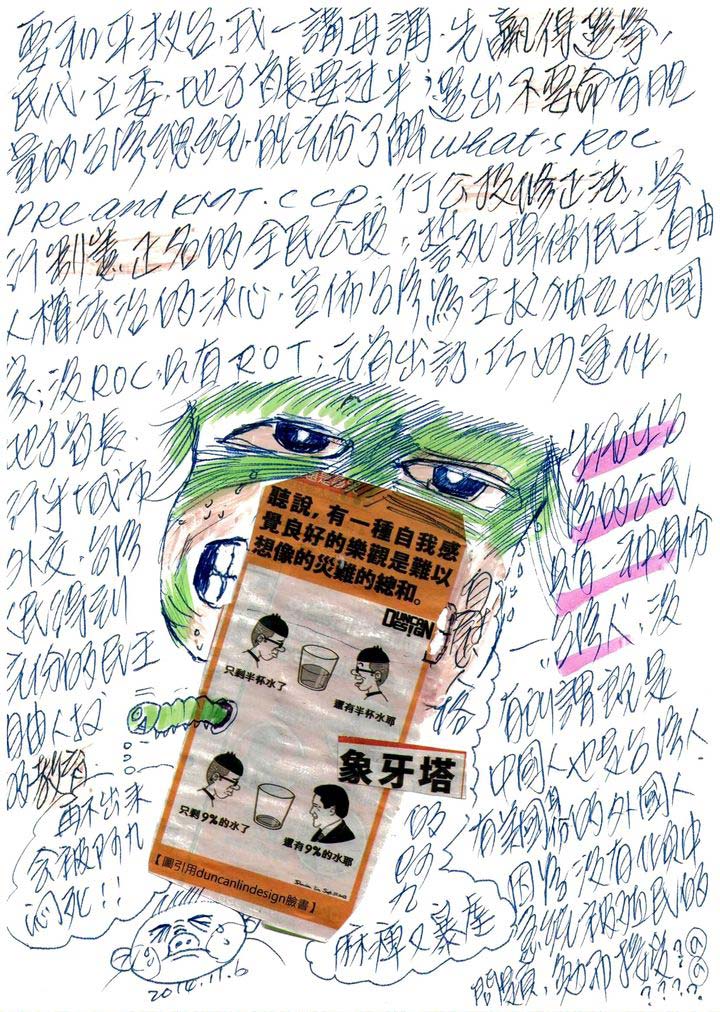 要和平救台,我一講再講,先贏得選舉,
民代,立委,地方首長要過半,選出不要命有胆
量的台灣總統,既充份了解what's ROC
PRC and KMT.CCP.行公投修正法,舉
行制憲正名的全民公投,誓死捍衛民主自由
人權法治的決心,宣佈台灣為主权独立的國
家,沒ROC只有ROT;元首出訪,巧妙運作,
地方首長
行城市
外交,台灣
民得到
充份的民主
自由人权
的教育
再不出來
会被阿九
悶死!!
2014.11.6
聽說,有一種自我感
覺良好的樂觀是難以
想像的災難的總和。
DUNCAN
DESIGN
只剩半杯水了
還有半杯水耶
象牙塔
只剩9%的水了
還有9%的水耶
【圖引用duncanlindesign臉書】
的阿九
麻痺又暴戾
生活在台
灣的公民
只有一种身份
台灣人",沒
有所謂既是
中國人也是台灣人
有美國籍的外國人
因為沒有化的中
被殖民的
問題,